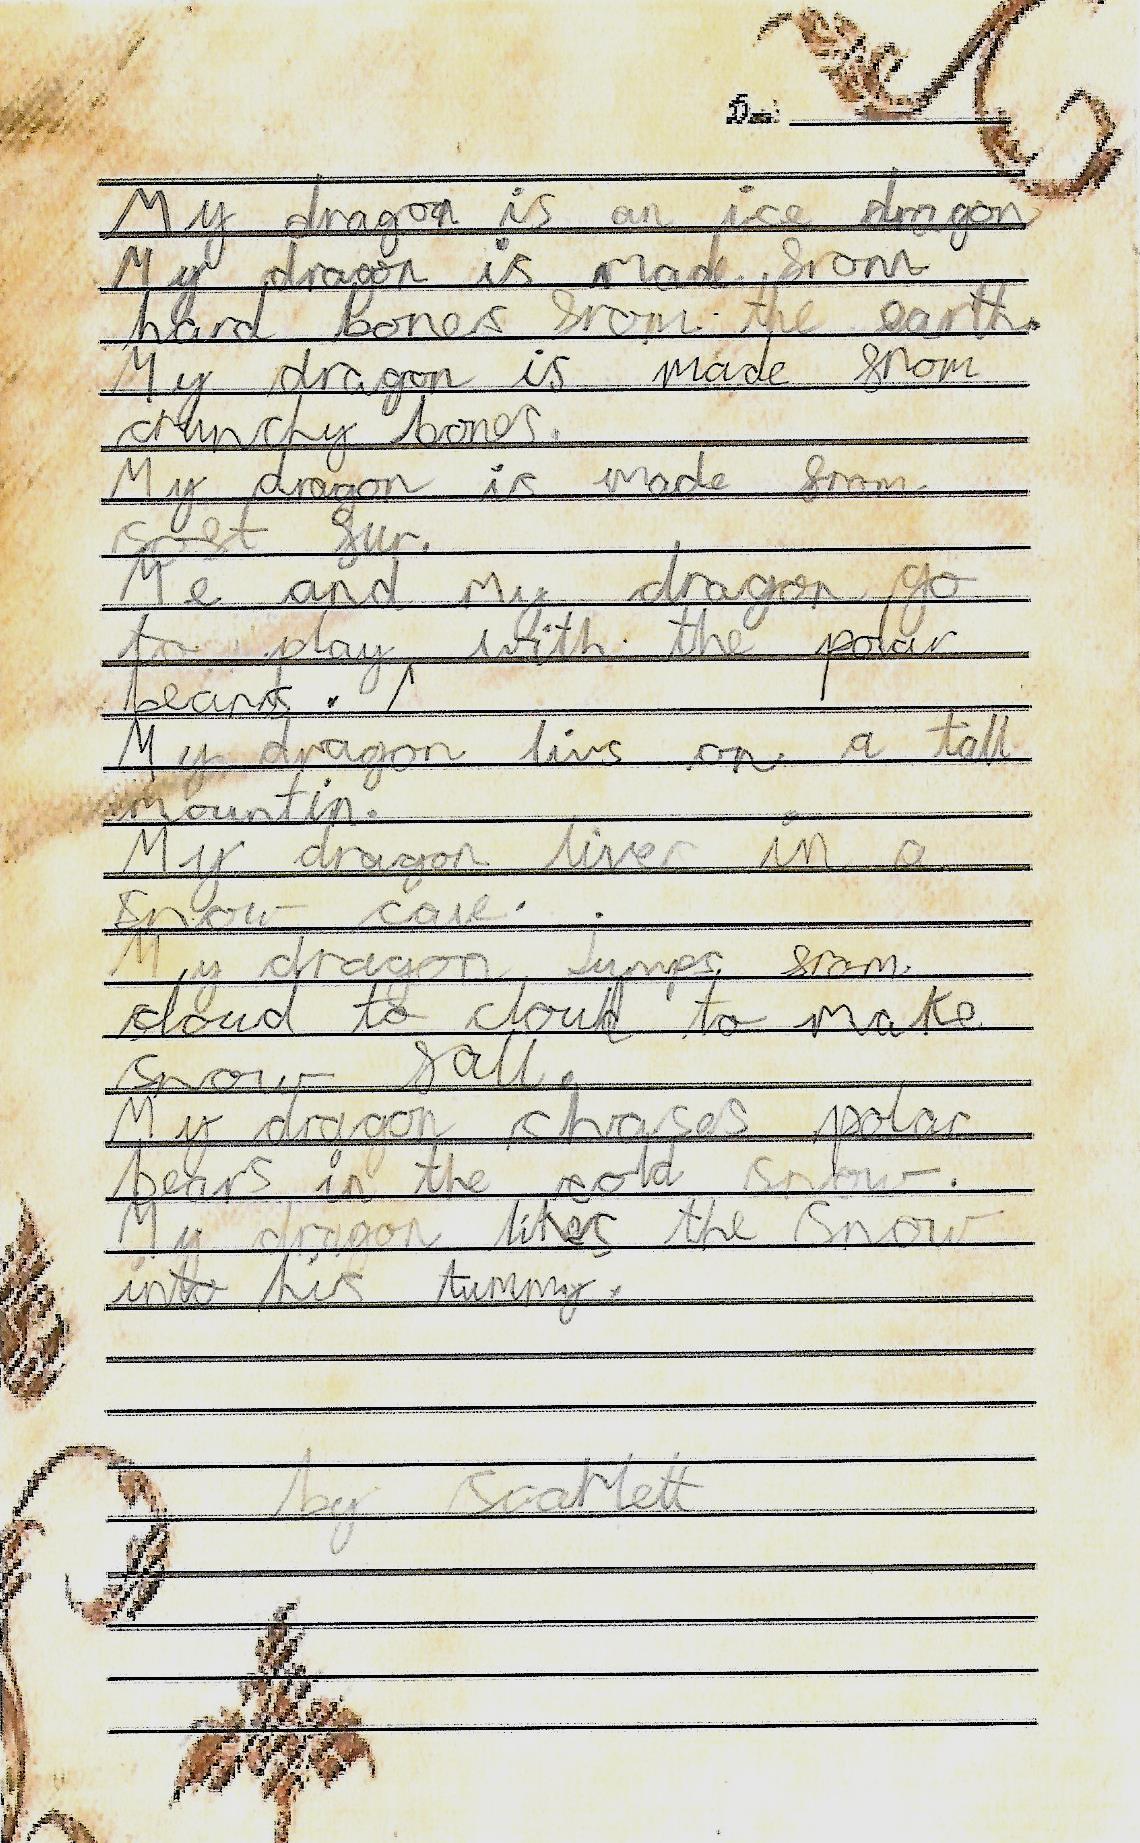 My dragon is an ice dragon
My dragon is made from
hard bones from the earth.
My dragon is made from
crunchy bones.
My dragon is made from
soft fur.
Me and my dragon go
to play with the polar
bears.
My dragon livs on a tall
mountin.
My dragon lives in a
snow cave.
My dragon Jumps from
cloud to cloud to make
snow fall.
My dragon chases polar
bears in the cold snow.
My dragon likes the snow
into his tummy.
by Scarlett